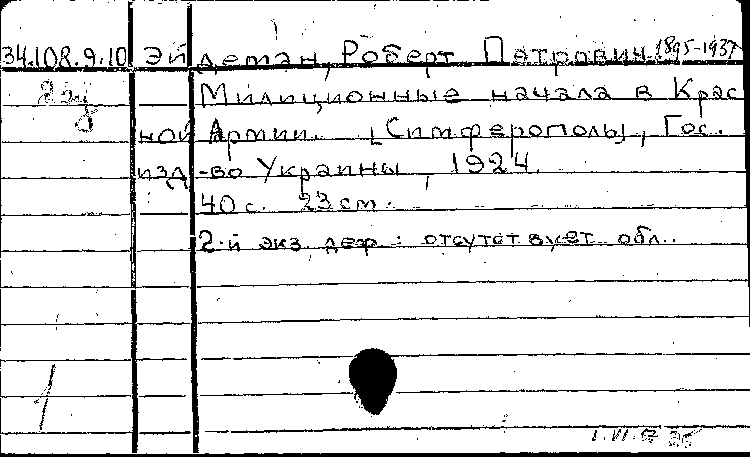 34.108.9.10 Эйдеман, Роберт Петрович. 1895-1937
2 экз
Милиционные начала в Крас
ной Армии. [Симферополь], Гос.
изд-во Украины, 1924.
40 с. 23 см.
2-й экз. деф.: отсутствует обл.
1